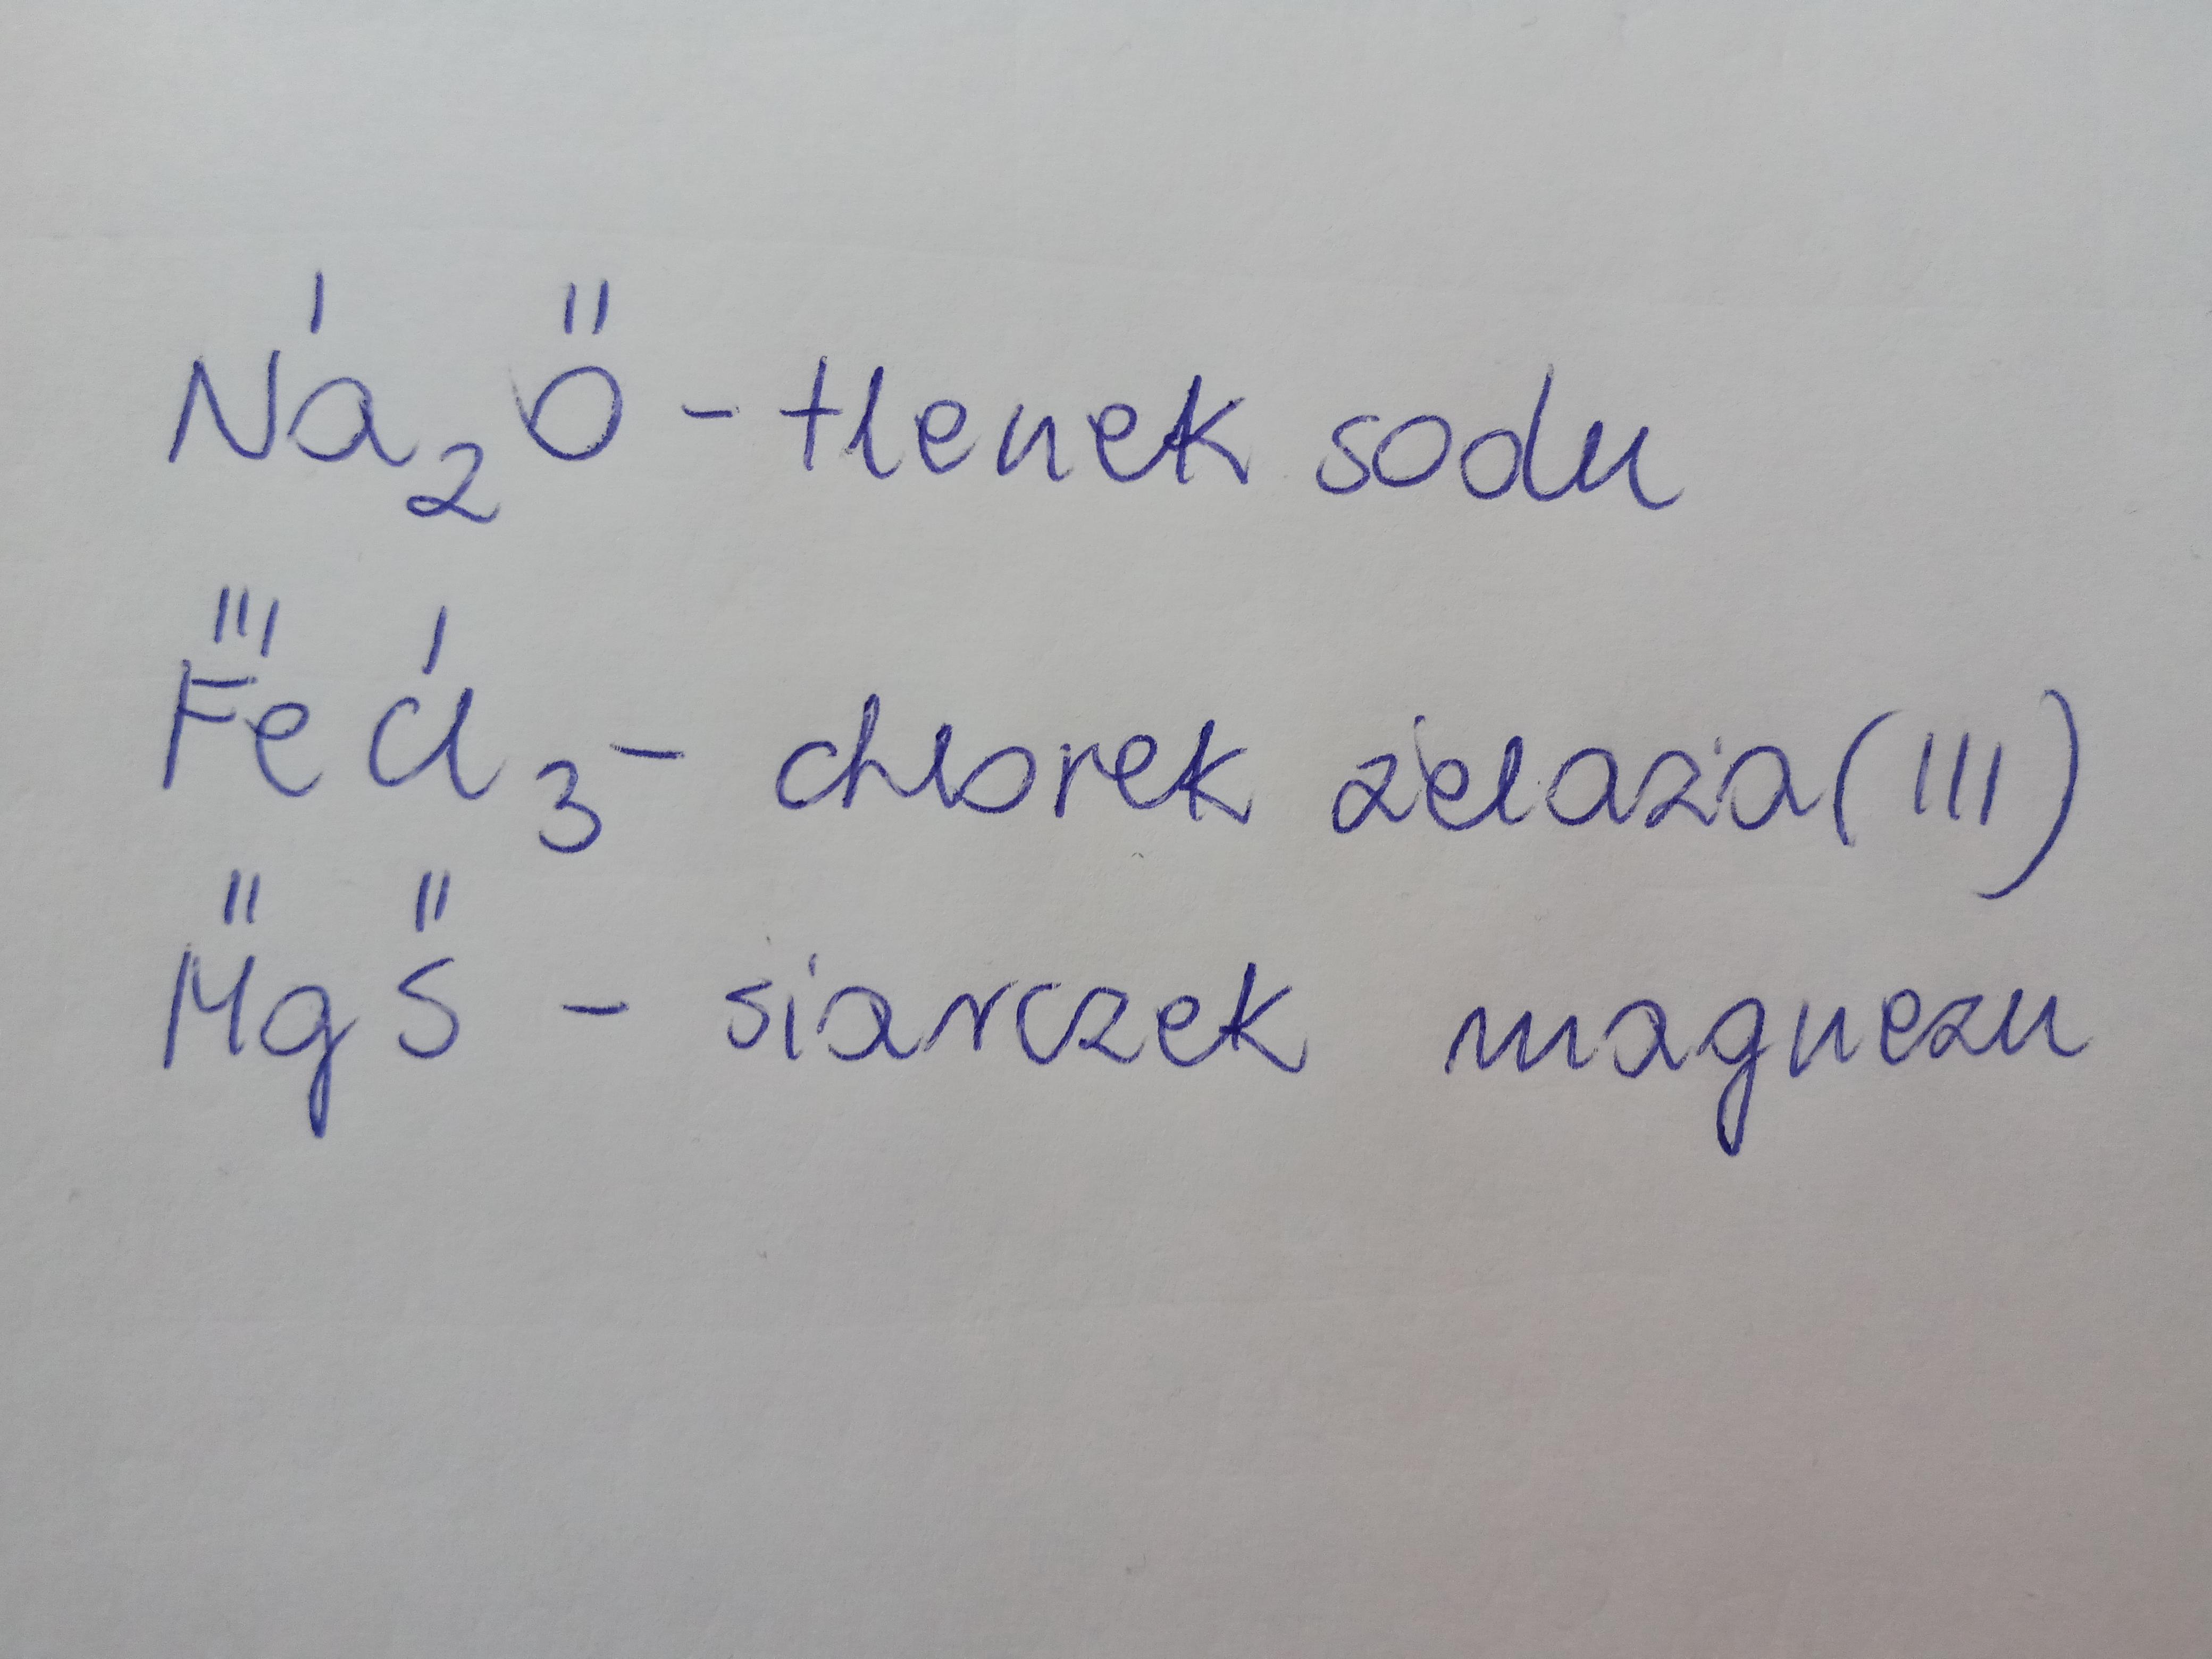 I II
Na₂O - tlenek sodu
III I
FeCl₃ - chlorek żelaza (III)
II II
MgS - siarczek magnezu